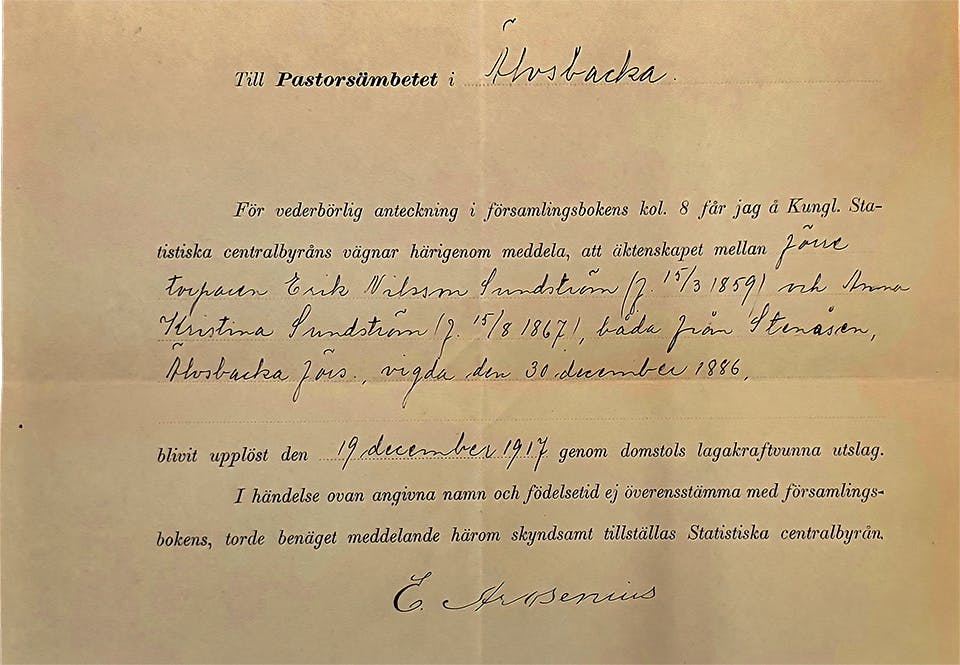 Till Pastorsämbetet i Älvsbacka.
För vederbörlig anteckning i församlingsbokens kol. 8 får jag å Kungl. Sta-
tistiska centralbyråns vägnar härigenom meddela, att äktenskapet mellan
torparen Erik Nilsson Sundström (f. 15/3 1859) och Anna
Kristina Sundström (f. 15/8 1867), båda från Stenåsen,
Älvsbacka förs., vigda den 30 december 1886,
blivit upplöst den 19 december 1917 genom domstols lagakraftvunna utslag.
I händelse ovan angivna namn och födelsetid ej överensstämma med församlings-
bokens, torde benäget meddelande härom skyndsamt tillställas Statistiska centralbyrån.
E. Arosenius